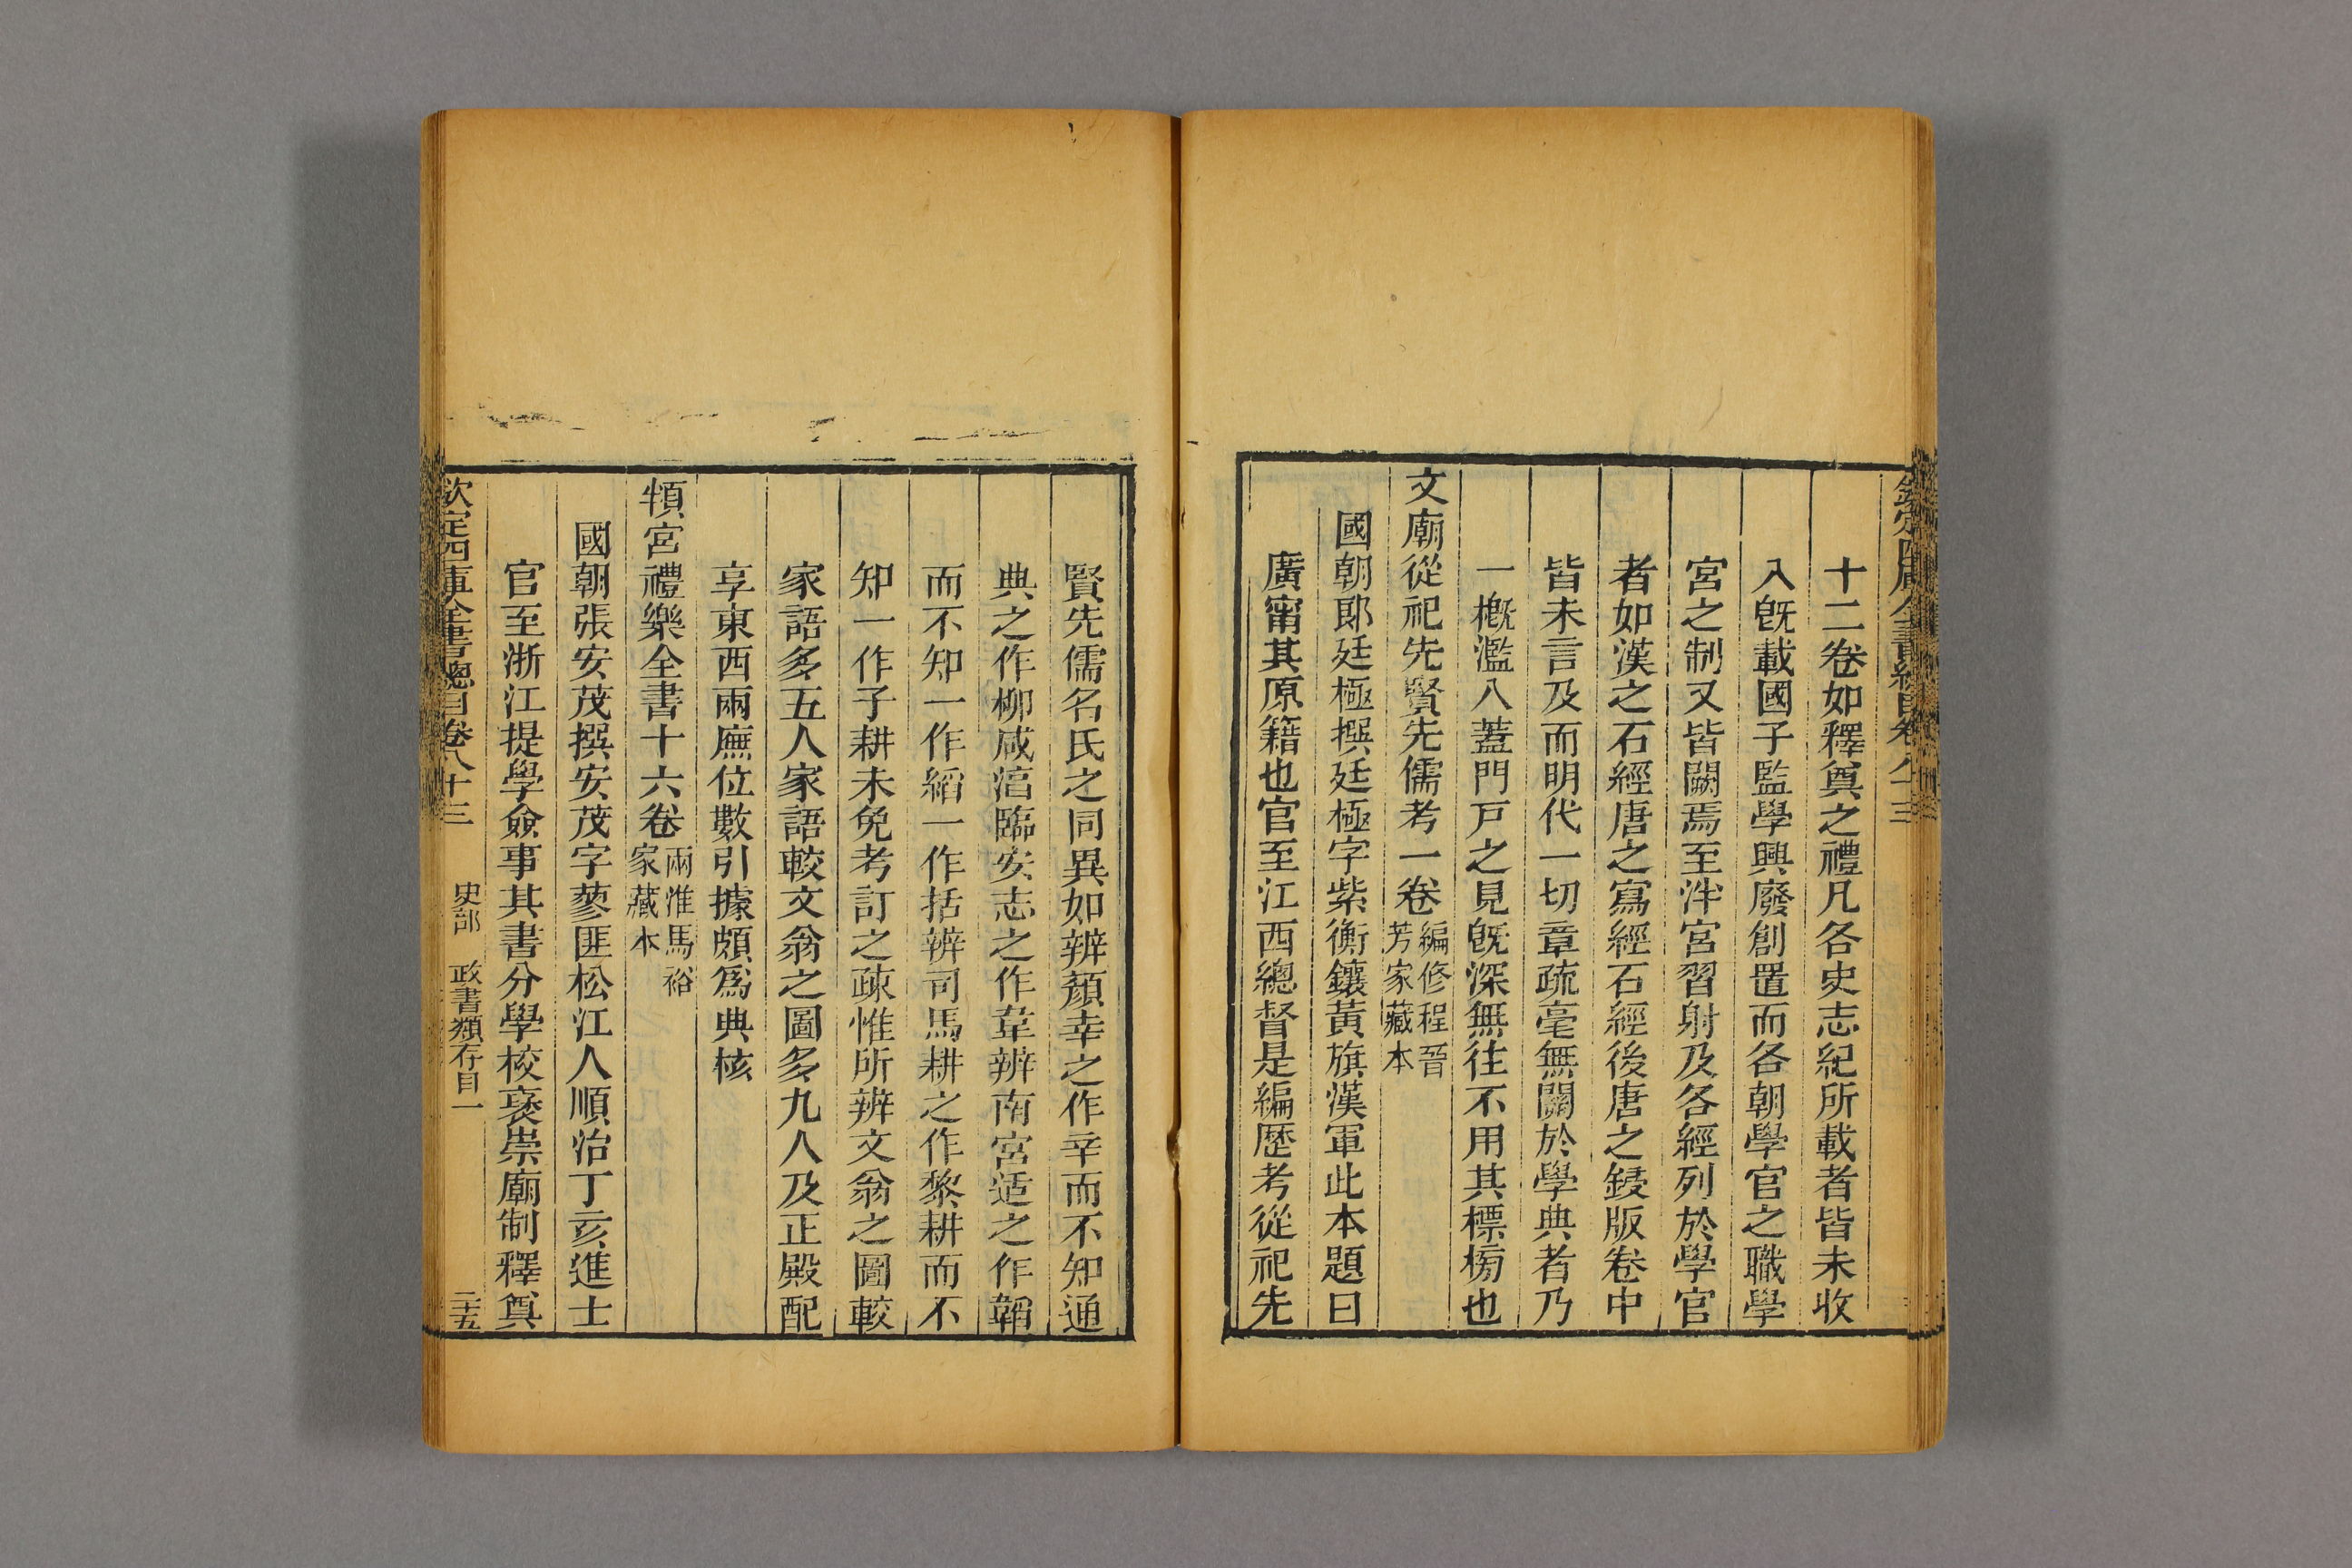 十二卷如釋奠之禮凡各史志紀所載者皆未收
入旣載國子監學興廢創置而各朝學官之職學
宮之制又皆闕焉至泮宮習射及各經列於學官
者如漢之石經唐之寫經石經後唐之鋟版卷中
皆未言及而明代一切章疏毫無關於學典者乃
一槪濫入蓋門戸之見旣深無往不用其標榜也
文廟從祀先賢先儒考一卷編修程晉芳家藏本
國朝郎廷極撰廷極字紫衡鑲黃旗漢軍此本題曰
廣甯其原籍也官至江西總督是編歷考從祀先
賢先儒名氏之同異如辨顏幸之作辛而不知通
典之作柳咸淳臨安志之作韋辨南宮适之作韜
而不知一作縚一作括辨司馬耕之作黎耕而不
知一作子耕未免考訂之疎惟所辨文翁之圖較
家語多五人家語較文翁之圖多九人及正殿配
享東西兩廡位數引據頗爲典核
頖宮禮樂全書十六卷兩淮馬裕家藏本
國朝張安茂撰安茂字蓼匪松江人順治丁亥進士
官至浙江提學僉事其書分學校褒崇廟制釋奠
欽定四庫全書總目卷八十三 史部 政書類存目一 二十五